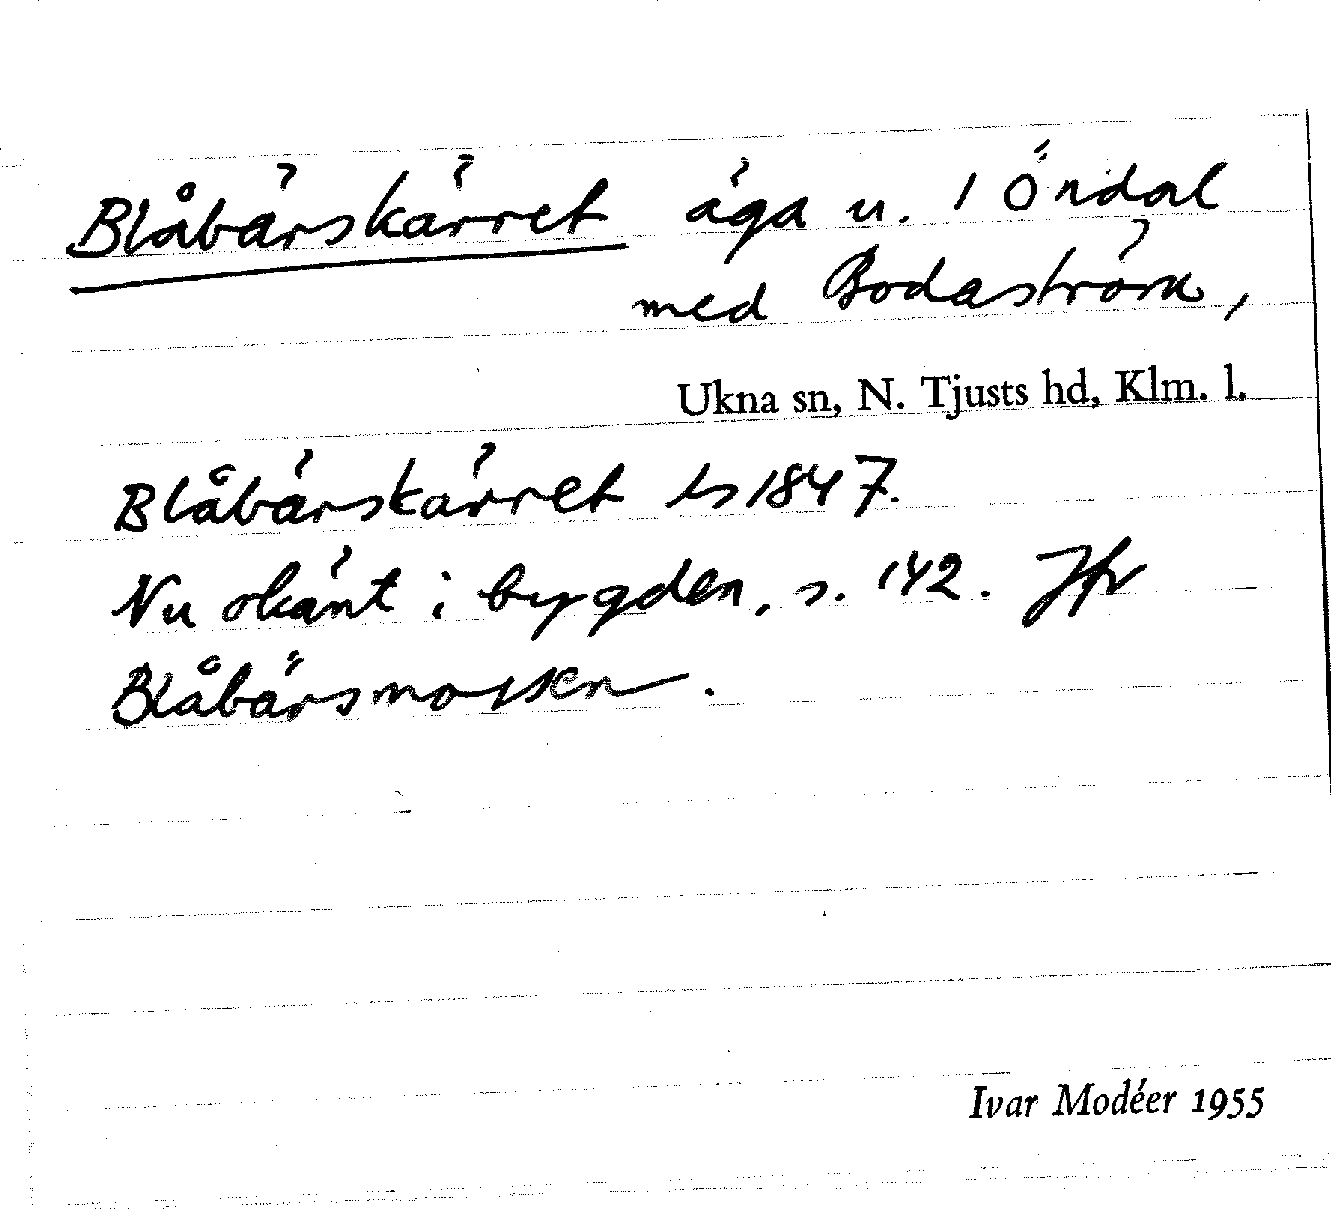 Blåbärskärret äga u. 1 Öndal
med Bodaström,
Ukna sn, N. Tjusts hd, Klm. l.
Blåbärskärret ls 1847.
Nu okänt i bygden, s. 142. Jfr
Blåbärsmossen.
Ivar Modéer 1955